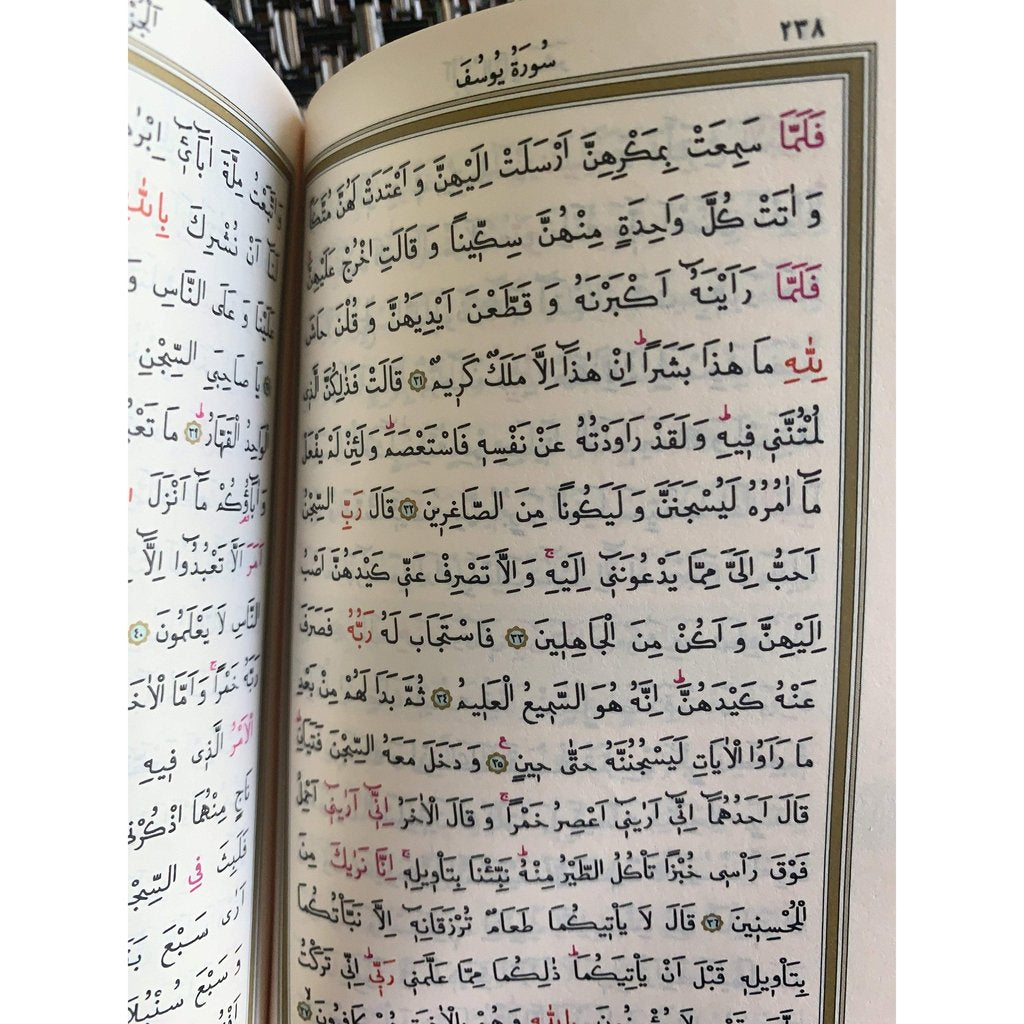 ٢٣٨
سُورَةُ يُوسُفَ
فَلَمَّا سَمِعَتْ بِمَكْرِهِنَّ اَرْسَلَتْ اِلَيْهِنَّ وَ اَعْتَدَتْ لَهُنَّ مُتَّكَـًٔا
وَ اٰتَتْ كُلَّ وَاحِدَةٍ مِنْهُنَّ سِكّ۪يناً وَ قَالَتِ اخْرُجْ عَلَيْهِنَّۚ
فَلَمَّا رَاَيْنَهُٓ اَكْبَرْنَهُ وَ قَطَّعْنَ اَيْدِيَهُنَّ وَ قُلْنَ حَاشَ
لِلّٰهِ مَا هٰذَا بَشَراًۜ اِنْ هٰذَٓا اِلَّا مَلَكٌ كَر۪يمٌ ﴿٣١﴾ قَالَتْ فَذٰلِكُنَّ الَّذ۪ي
لُمْتُنَّن۪ي ف۪يهِۜ وَ لَقَدْ رَاوَدْتُهُ عَنْ نَفْسِه۪ فَاسْتَعْصَمَۜ وَ لَئِنْ لَمْ يَفْعَلْ
مَٓا اٰمُرُهُ لَيُسْجَنَنَّ وَ لَيَكُوناً مِنَ الصَّاغِر۪ينَ ﴿٣٢﴾ قَالَ رَبِّ السِّجْنُ
اَحَبُّ اِلَيَّ مِمَّا يَدْعُونَن۪ٓي اِلَيْهِۚ وَ اِلَّا تَصْرِفْ عَنّ۪ي كَيْدَهُنَّ اَصْبُ
اِلَيْهِنَّ وَ اَكُنْ مِنَ الْجَاهِل۪ينَ ﴿٣٣﴾ فَاسْتَجَابَ لَهُ رَبُّهُ فَصَرَفَ
عَنْهُ كَيْدَهُنَّۜ اِنَّهُ هُوَ السَّم۪يعُ الْعَل۪يمُ ﴿٣٤﴾ ثُمَّ بَدَا لَهُمْ مِنْ بَعْدِ
مَا رَاَوُا الْاٰيَاتِ لَيَسْجُنُنَّهُ حَتّٰى ح۪ينٍ ﴿٣٥﴾ وَ دَخَلَ مَعَهُ السِّجْنَ فَتَيَانِۜ
قَالَ اَحَدُهُمَٓا اِنّ۪ٓي اَرٰين۪ٓي اَعْصِرُ خَمْراًۚ وَ قَالَ الْاٰخَرُ اِنّ۪ٓي اَرٰين۪ٓي اَحْمِلُ
فَوْقَ رَاْس۪ي خُبْزاً تَاْكُلُ الطَّيْرُ مِنْهُۜ نَبِّئْنَا بِتَاْو۪يلِه۪ۚ اِنَّا نَرٰيكَ مِنَ
الْمُحْسِن۪ينَ ﴿٣٦﴾ قَالَ لَا يَاْت۪يكُمَا طَعَامٌ تُرْزَقَانِه۪ٓ اِلَّا نَبَّأْتُكُمَا
بِتَاْو۪يلِه۪ قَبْلَ اَنْ يَاْتِيَكُمَاۜ ذٰلِكُمَا مِمَّا عَلَّمَن۪ي رَبّ۪يۜ اِنّ۪ي تَرَكْتُ
مِلَّةَ اٰبَٓاء۪ٓي
اَنْ نُشْرِكَ بِاللّٰهِ
عَلَيْنَا وَ عَلَى النَّاسِ وَ
يَا صَاحِبَيِ السِّجْنِ
الْوَاحِدُ الْقَهَّارُۜ ﴿٣٩﴾ مَا
وَ اٰبَٓاؤُ۬كُمْ مَٓا اَنْزَلَ
اَمَرَ اَلَّا تَعْبُدُٓوا اِلَّٓا
النَّاسِ لَا يَعْلَمُونَ ﴿٤٠﴾
رَبَّهُ خَمْراًۚ وَ اَمَّا
الْاَمْرُ الَّذ۪ي ف۪يهِ
نَاجٍ مِنْهُمَا
فَلَبِثَ فِي
اَرٰى سَبْعَ
وَ سَبْعَ